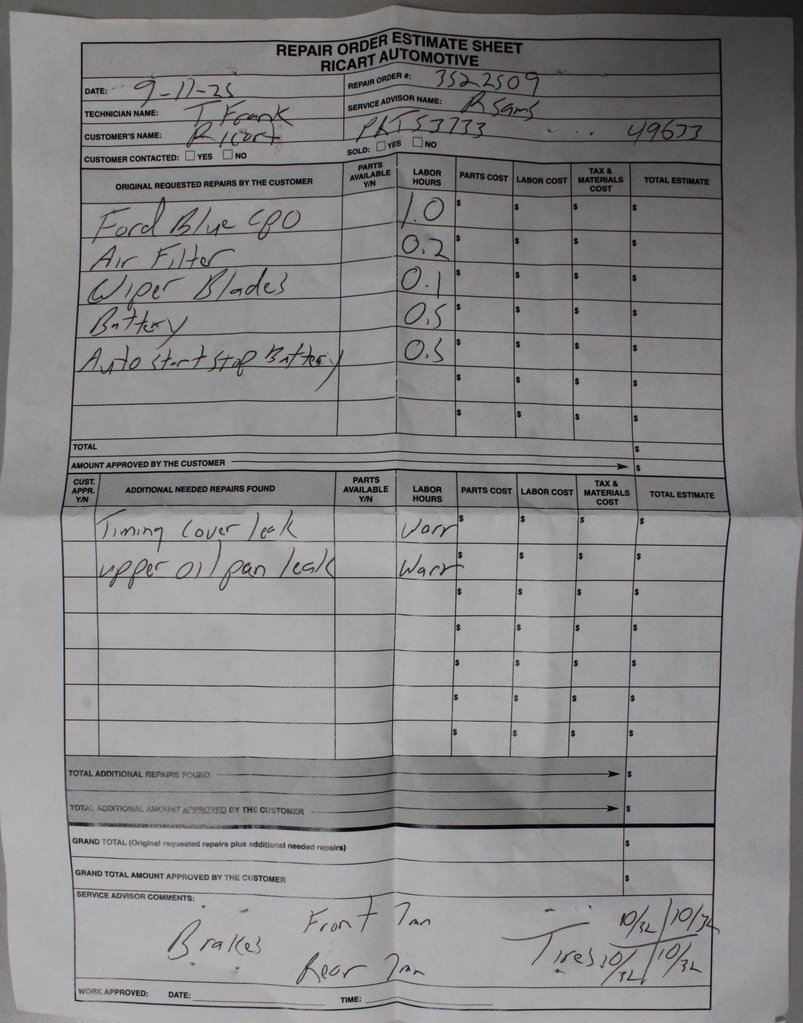 REPAIR ORDER ESTIMATE SHEET
RICART AUTOMOTIVE
DATE: 9-11-25 REPAIR ORDER #: 3522509
TECHNICIAN NAME: T. Frank SERVICE ADVISOR NAME: R Sams
CUSTOMER'S NAME: Ricart PKT53733 49633
CUSTOMER CONTACTED: YES NO SOLD: YES NO
ORIGINAL REQUESTED REPAIRS BY THE CUSTOMER PARTS AVAILABLE Y/N LABOR HOURS PARTS COST LABOR COST TAX & MATERIALS COST TOTAL ESTIMATE
Ford Blue CPO 1.0 $ $ $ $
Air Filter 0.2 $ $ $ $
Wiper Blades 0.1 $ $ $ $
Battery 0.5 $ $ $ $
Auto start stop Battery 0.5 $ $ $ $
$ $ $ $
$ $ $ $
TOTAL $
AMOUNT APPROVED BY THE CUSTOMER $
CUST. APPR. Y/N ADDITIONAL NEEDED REPAIRS FOUND PARTS AVAILABLE Y/N LABOR HOURS PARTS COST LABOR COST TAX & MATERIALS COST TOTAL ESTIMATE
Timing cover leak Warr $ $ $ $
upper oil pan leak Warr $ $ $ $
$ $ $ $
$ $ $ $
$ $ $ $
$ $ $ $
$ $ $ $
TOTAL ADDITIONAL REPAIRS FOUND $
TOTAL ADDITIONAL AMOUNT APPROVED BY THE CUSTOMER $
GRAND TOTAL (Original requested repairs plus additional needed repairs) $
GRAND TOTAL AMOUNT APPROVED BY THE CUSTOMER $
SERVICE ADVISOR COMMENTS:
Brakes Front 7mm Tires 10/32 10/32
Rear 7mm 10/32 10/32
WORK APPROVED: DATE: TIME: